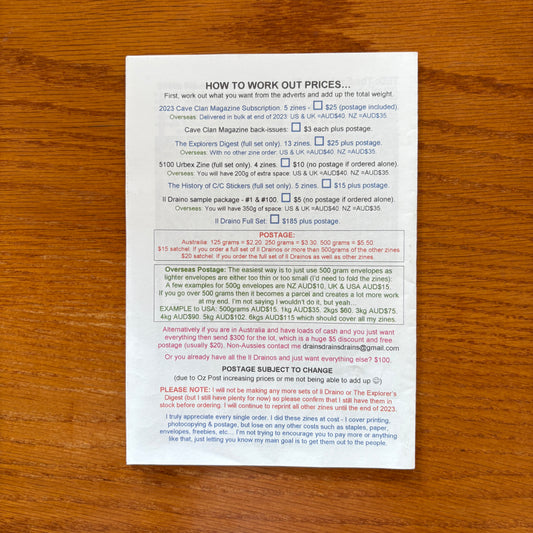 HOW TO WORK OUT PRICES...
First, work out what you want from the adverts and add up the total weight.
2023 Cave Clan Magazine Subscription. 5 zines - ☐ $25 (postage included).
Overseas: Delivered in bulk at end of 2023: US & UK =AUD$40. NZ =AUD$35.
Cave Clan Magazine back-issues: ☐ $3 each plus postage.
The Explorers Digest (full set only). 13 zines. ☐ $25 plus postage.
Overseas: With no other zine order: US & UK =AUD$40. NZ =AUD$35.
5100 Urbex Zine (full set only). 4 zines. ☐ $10 (no postage if ordered alone).
Overseas: You will have 200g of extra space: US & UK =AUD$40. NZ =AUD$35.
The History of C/C Stickers (full set only). 5 zines. ☐ $15 plus postage.
Il Draino sample package - #1 & #100. ☐ $5 (no postage if ordered alone).
Overseas: You will have 350g of space: US & UK =AUD$40. NZ =AUD$35.
Il Draino Full Set: ☐ $185 plus postage.
POSTAGE:
Australia: 125 grams = $2.20. 250 grams = $3.30. 500 grams = $5.50.
$15 satchel: If you order a full set of Il Drainos or more than 500grams of the other zines
$20 satchel: if you order the full set of Il Drainos as well as other zines.
Overseas Postage: The easiest way is to just use 500 gram envelopes as
lighter envelopes are either too thin or too small (I'd need to fold the zines):
A few examples for 500g envelopes are NZ AUD$10, UK & USA AUD$15.
If you go over 500 grams then it becomes a parcel and creates a lot more work
at my end. I'm not saying I wouldn't do it, but yeah...
EXAMPLE to USA: 500grams AUD$15. 1kg AUD$35. 2kgs $60. 3kg AUD$75.
4kg AUD$90. 5kg AUD$102. 6kgs AUD$115 which should cover all my zines.
Alternatively if you are in Australia and have loads of cash and you just want
everything then send $300 for the lot, which is a huge $5 discount and free
postage (usually $20). Non-Aussies contact me drainsdrainsdrains@gmail.com
Or you already have all the Il Drainos and just want everything else? $100.
POSTAGE SUBJECT TO CHANGE
(due to Oz Post increasing prices or me not being able to add up ☺)
PLEASE NOTE: I will not be making any more sets of Il Draino or The Explorer's
Digest (but I still have plenty for now) so please confirm that I still have them in
stock before ordering. I will continue to reprint all other zines until the end of 2023.
I truly appreciate every single order. I did these zines at cost - I cover printing,
photocopying & postage, but lose on any other costs such as staples, paper,
envelopes, freebies, etc... I'm not trying to encourage you to pay more or anything
like that, just letting you know my main goal is to get them out to the people.